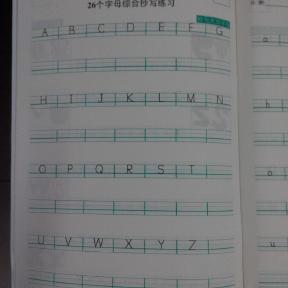 26个字母综合抄写练习
A B C D E F G
H I J K L M N
O P Q R S T
U V W X Y Z
a
h
o
u